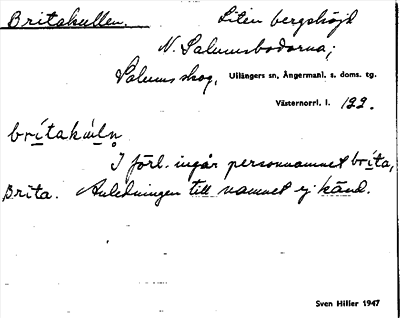 Britakullen. Liten bergshöjd
N. Salumsbodarna;
Salums skog, Ullångers sn, Ångermanl. s. doms. tg.
Västernorrl. l. 122.
britakúln̥
I förl. ingår personnamnet brita,
Brita. Anledningen till namnet ej känd.
Sven Hiller 1947